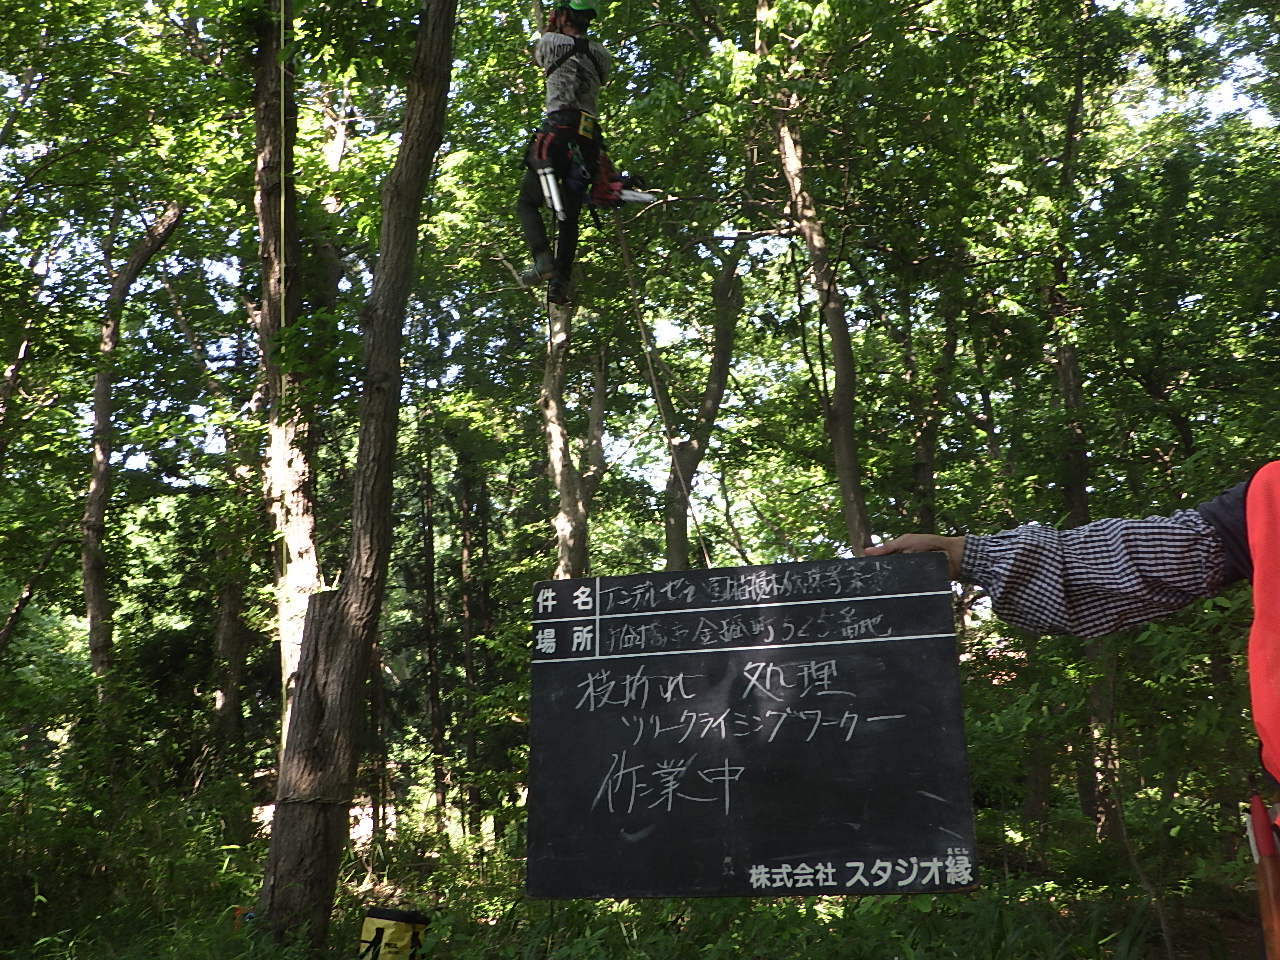 件名 アンデルセン公園樹木伐採等業務
場所 船橋市金堀町525番地
枝折れ 処理
ツリークライミングワーク
作業中
株式会社 スタジオ縁
えにし